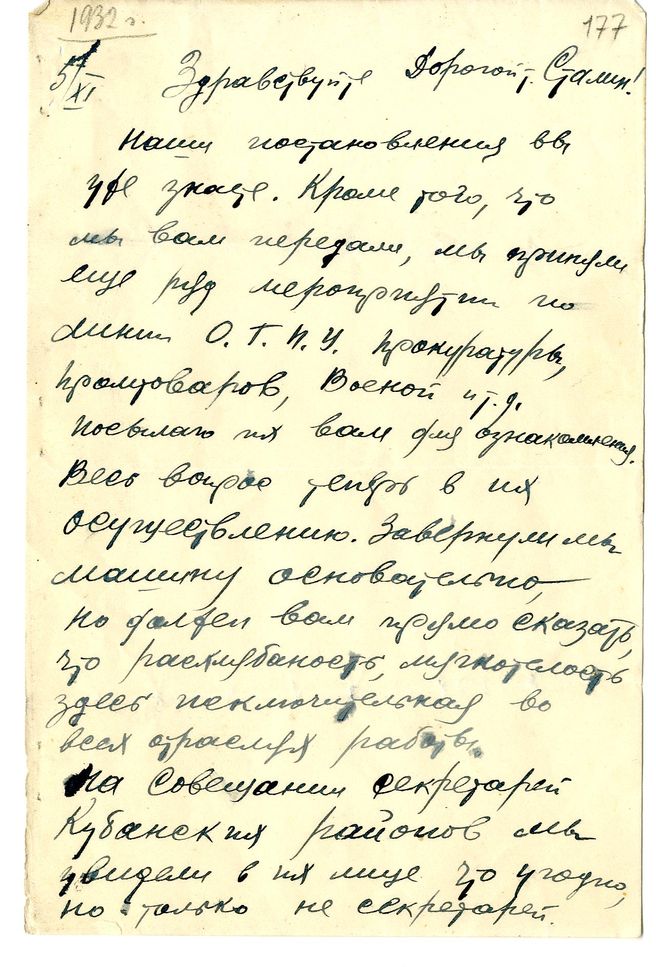 1932 г.
177
5/XI
Здравствуйте Дорогой т. Сталин!
Наши постановления вы
уже знаете. Кроме того, что
мы вам передали, мы приняли
еще ряд мероприятии по
линии О. Г. П. У. прокуратуры,
промтоваров, Военой и т. д.
посылаю их вам для ознакомления.
Весь вопрос теперь в их
осуществлению. Завернули мы
машину основательно,
но должен вам прямо сказать,
что расхлубаность, мягкотелость
здесь исключительная во
всех отраслях работы.
На совещании секретарей
Кубанских районов мы
увидели в их лице что угодно,
но только не секретарей.